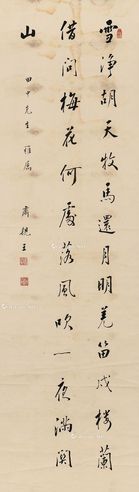 雪淨胡天牧馬還月明羌笛戍樓蘭
借問梅花何處落風吹一夜滿関
山
田中先生雅屬
肅親王